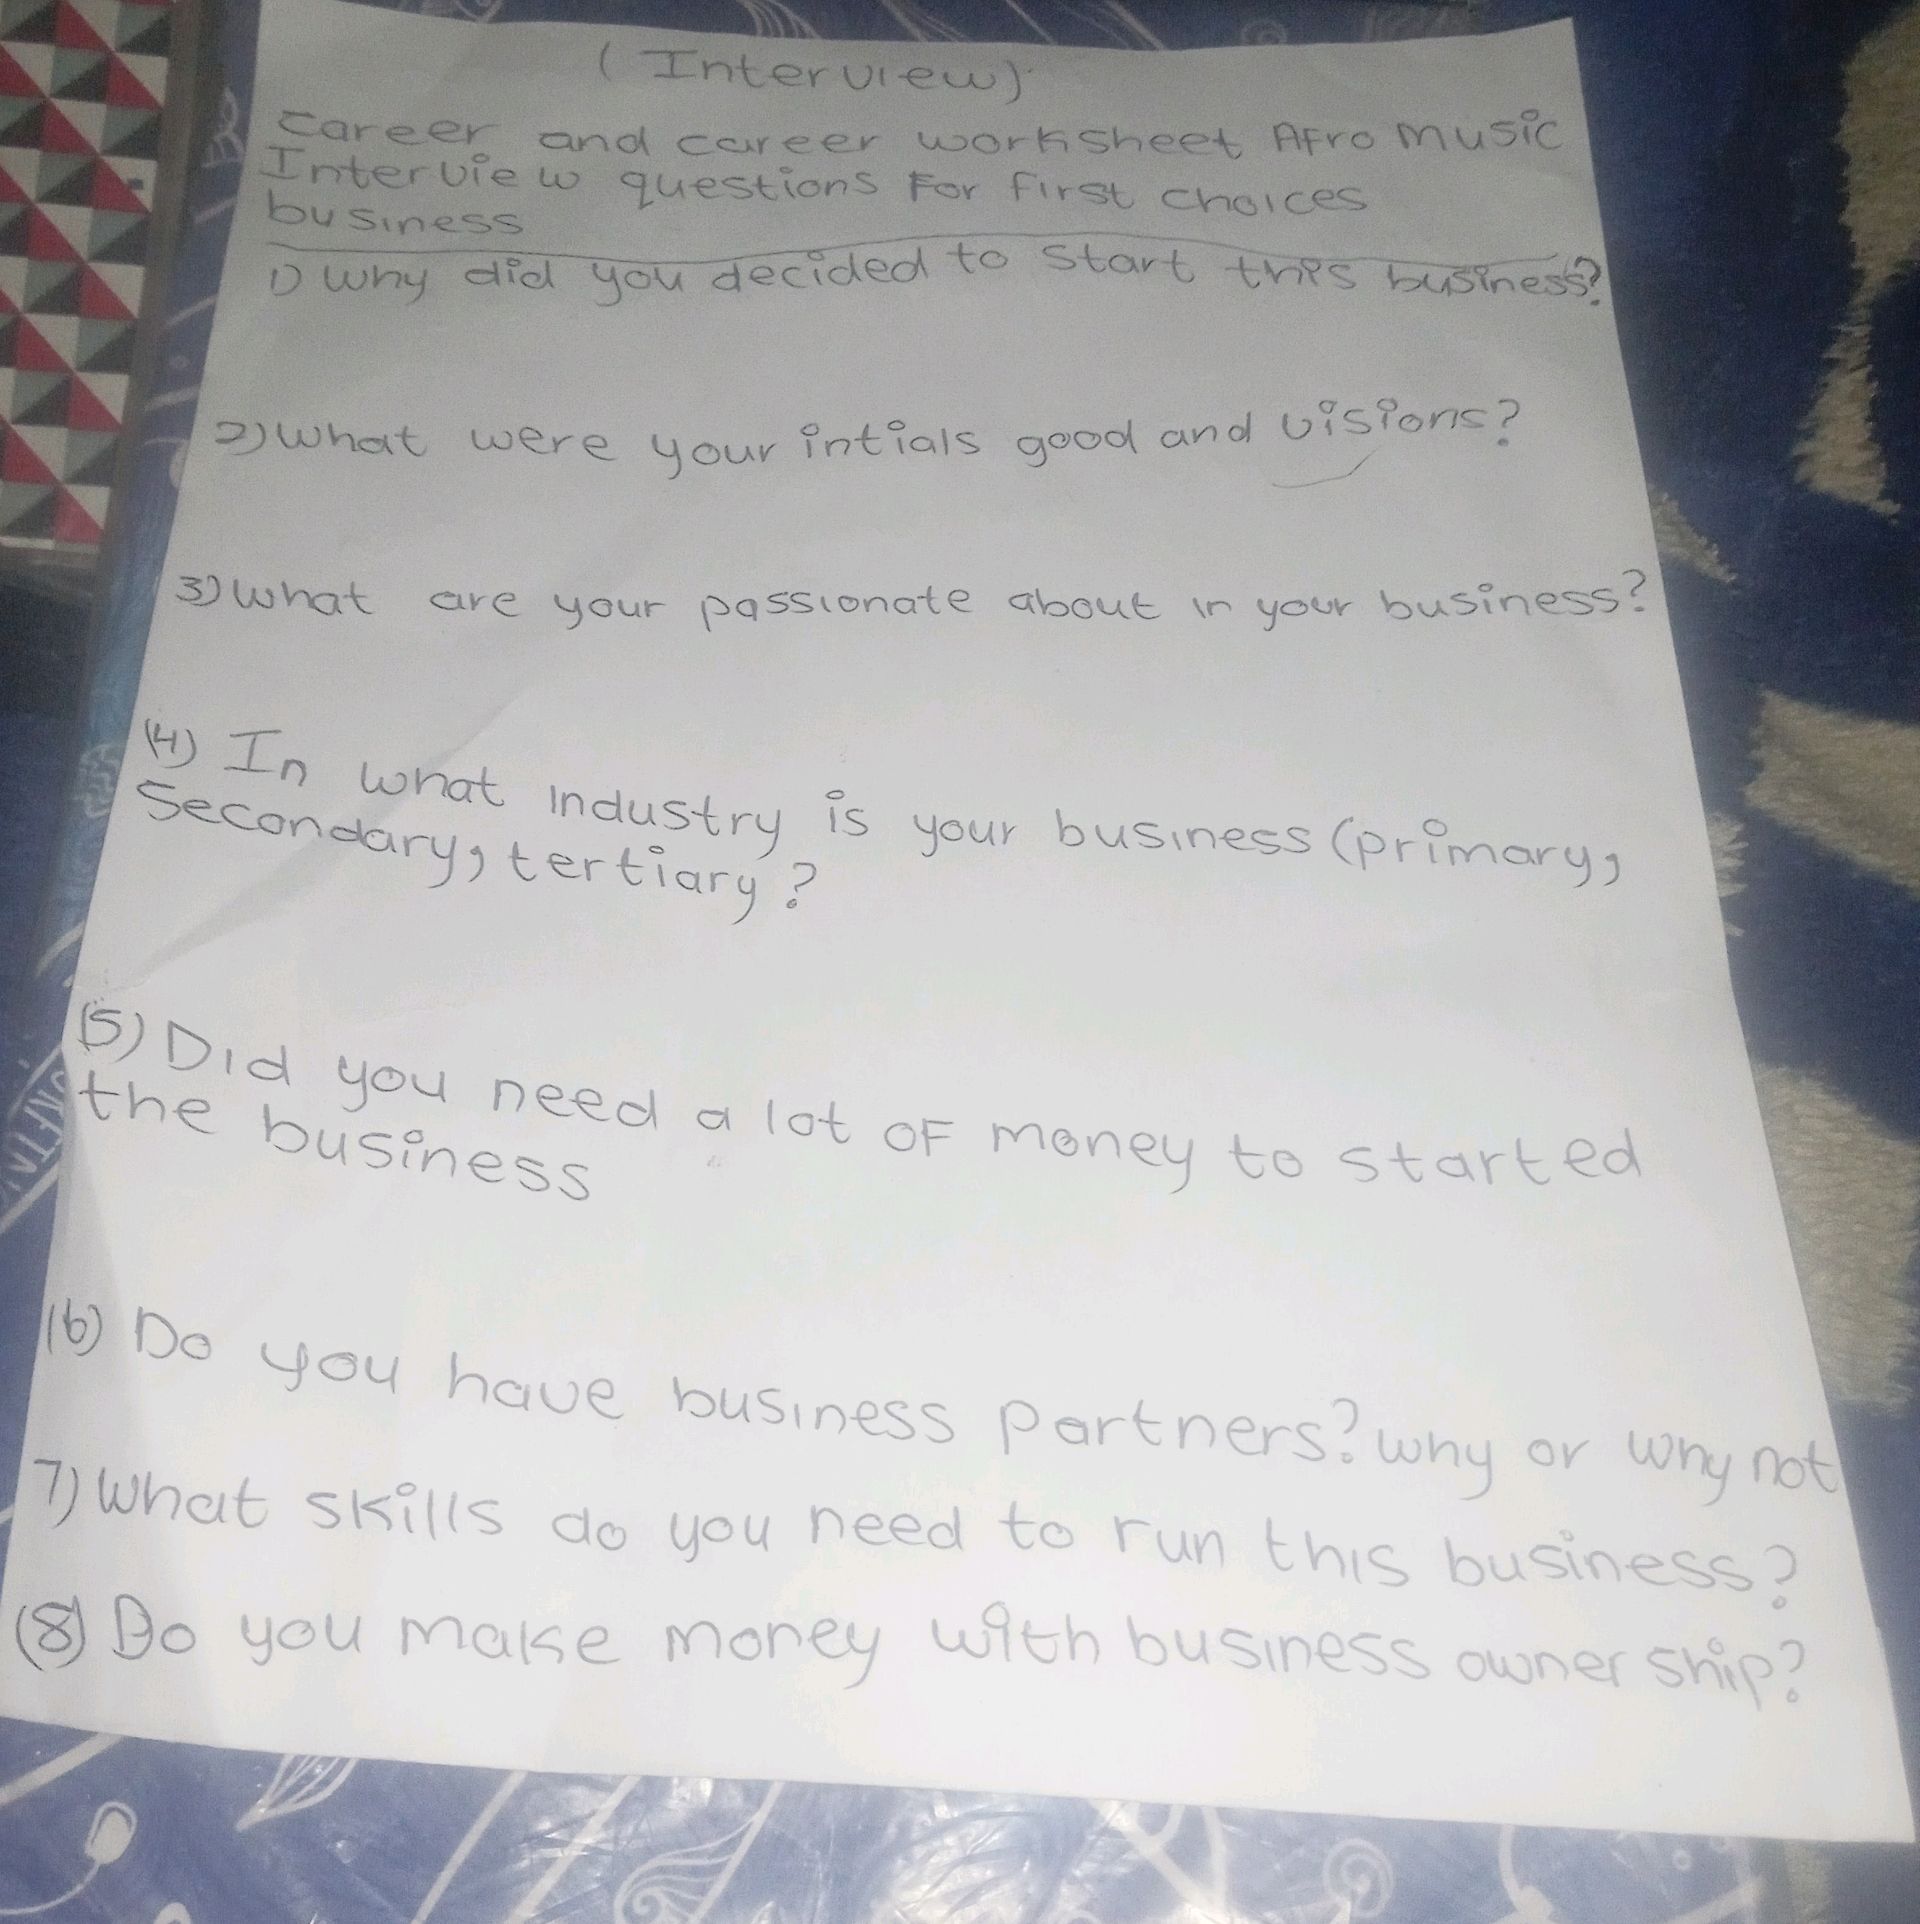 (Interview)
Career and career worksheet Afro music
Interview questions For first choices
business
1) Why did you decided to start this business?
2) What were your intials good and visions?
3) What are your passionate about in your business?
(4) In what industry is your business (primary,
Secondary, tertiary?
(5) Did you need a lot of money to started
the business
(6) Do you have business partners? why or why not
7) What skills do you need to run this business?
(8) Do you make money with business owner ship?